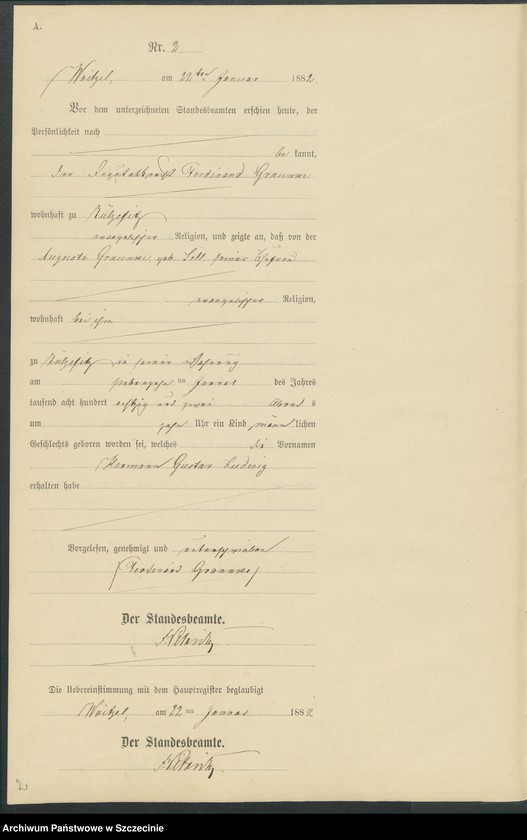 A.
Nr. 2
Woitzel, am 22ten Januar 1882.
Vor dem unterzeichneten Standesbeamten erschien heute, der
Persönlichkeit nach
be kannt,
der Ferdinand Graunke
wohnhaft zu Külzefitz
evangelischer Religion, und zeigte an, daß von der
Auguste Graunke, geb. Sell, seiner Ehefrau
evangelischer Religion,
wohnhaft bei ihm
zu Külzefitz in seiner Wohnung
am siebenzehn ten Januar des Jahres
tausend acht hundert achtzig und zwei Abend s
um zehn Uhr ein Kind männ lichen
Geschlechts geboren worden sei, welches die Vornamen
Hermann Gustav Ludwig
erhalten habe
Vorgelesen, genehmigt und unterschrieben
Ferdinand Graunke
Der Standesbeamte.
Die Uebereinstimmung mit dem Hauptregister beglaubigt
Woitzel, am 22 ten Januar 1882
Der Standesbeamte.
2
Archiwum Państwowe w Szczecinie